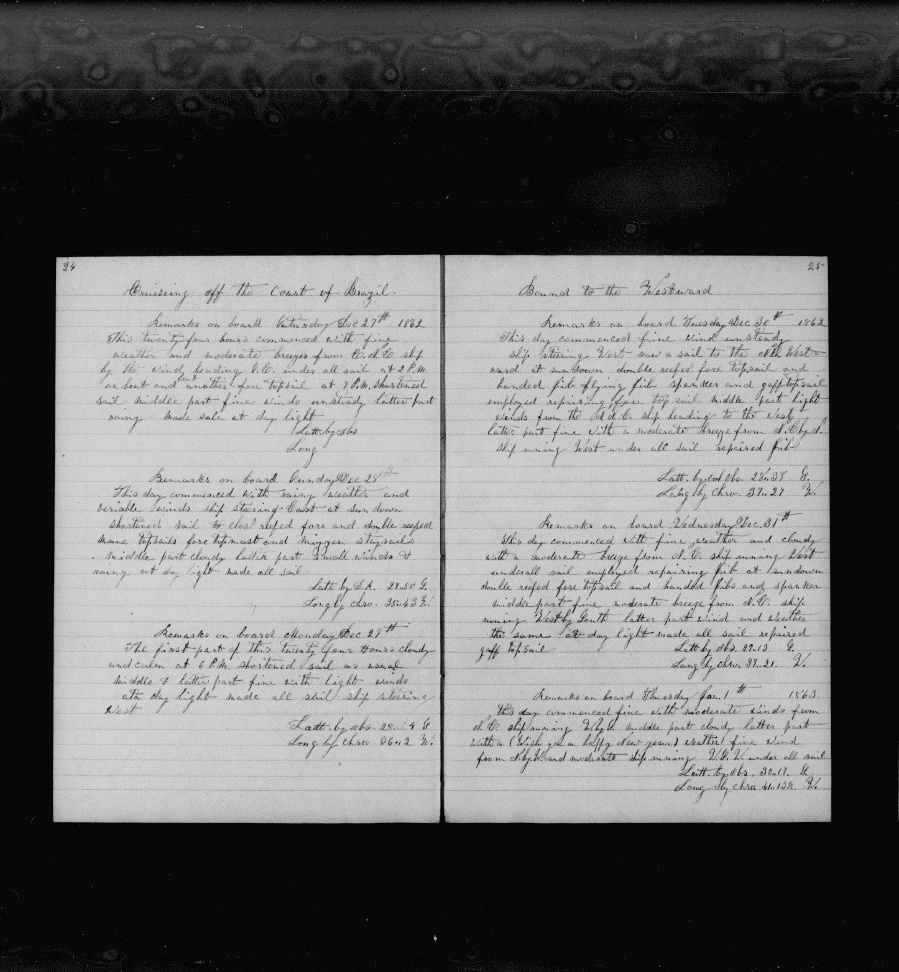 24
Cruissing off the Coast of Brazil.
Remarks on board Saturday Dec 27th 1862
This twenty four hours commenced with fine
weather and moderate breezes from ship
by the wind heading under all sail at 2 P.M.
on bent and another fore topsail at 7 P.M. Shortened
sail middle part fine winds unsteady latter part
raing made sale at day light
Latt. by obs
Long
Remarks on board Sunday Dec 28th
This day commenced with rainy weather and
veriable winds ship stering East at sun down
shortened sail to close reefed fore and double reefed
mane topsails fore topmast and mizzen staysails
middle part cloudy latter part small winds &
raing at day light made all sail
Latt by D.R. 28.50 S.
Long by chro. 35.43 W.
Remarks on board Monday Dec 29th
The first part of this twenty four Hours cloudy
and calm at 6 P.M. shortened sail as usual
middle & latter part fine with light winds
at day light made all sail ship steering
West
Latt. by obs. S
Long by chro 36.2 W.
25
Bound to the Westward
Remarks on board Tuesday Dec 30th 1862
This day commenced fine wind unsteady
ship stering West saw a sail to the West-
ward at sundown double reefed fore topsail and
handed jib flying jib spanker and gaff topsail
employed repairing fore topsail middle part light
winds from the ship heading to the West
latter part fine with a moderate breeze from
ship runing West under all sail repaired jib
Latt. by obs. 28.38 S.
Long by chro. 37.27 W.
Remarks on board Wednesday Dec. 31th
This day commenced with fine weather and cloudy
with a moderate breeze from N.E. ship runing West
under all sail employed repairing jib at sundown
double reefed fore topsail and handed jibs and spanker
middle part fine moderate breeze from N.E. ship
runing West by South latter part wind and weather
the same at day light made all sail repaired
gaff topsail Latt by obs. 29.13 S.
Long by chro. 39.21. W.
Remarks on board Thursday Jan. 1th 1863
this day commenced fine with moderate winds from
N.E. ship runing W.by.S. middle part cloudy latter part
with a (Wish you a happy New year) weather fine wind
from and moderate ship runing under all sail
Latt. by obs. 30.17. S.
Long by chro. 41. W.